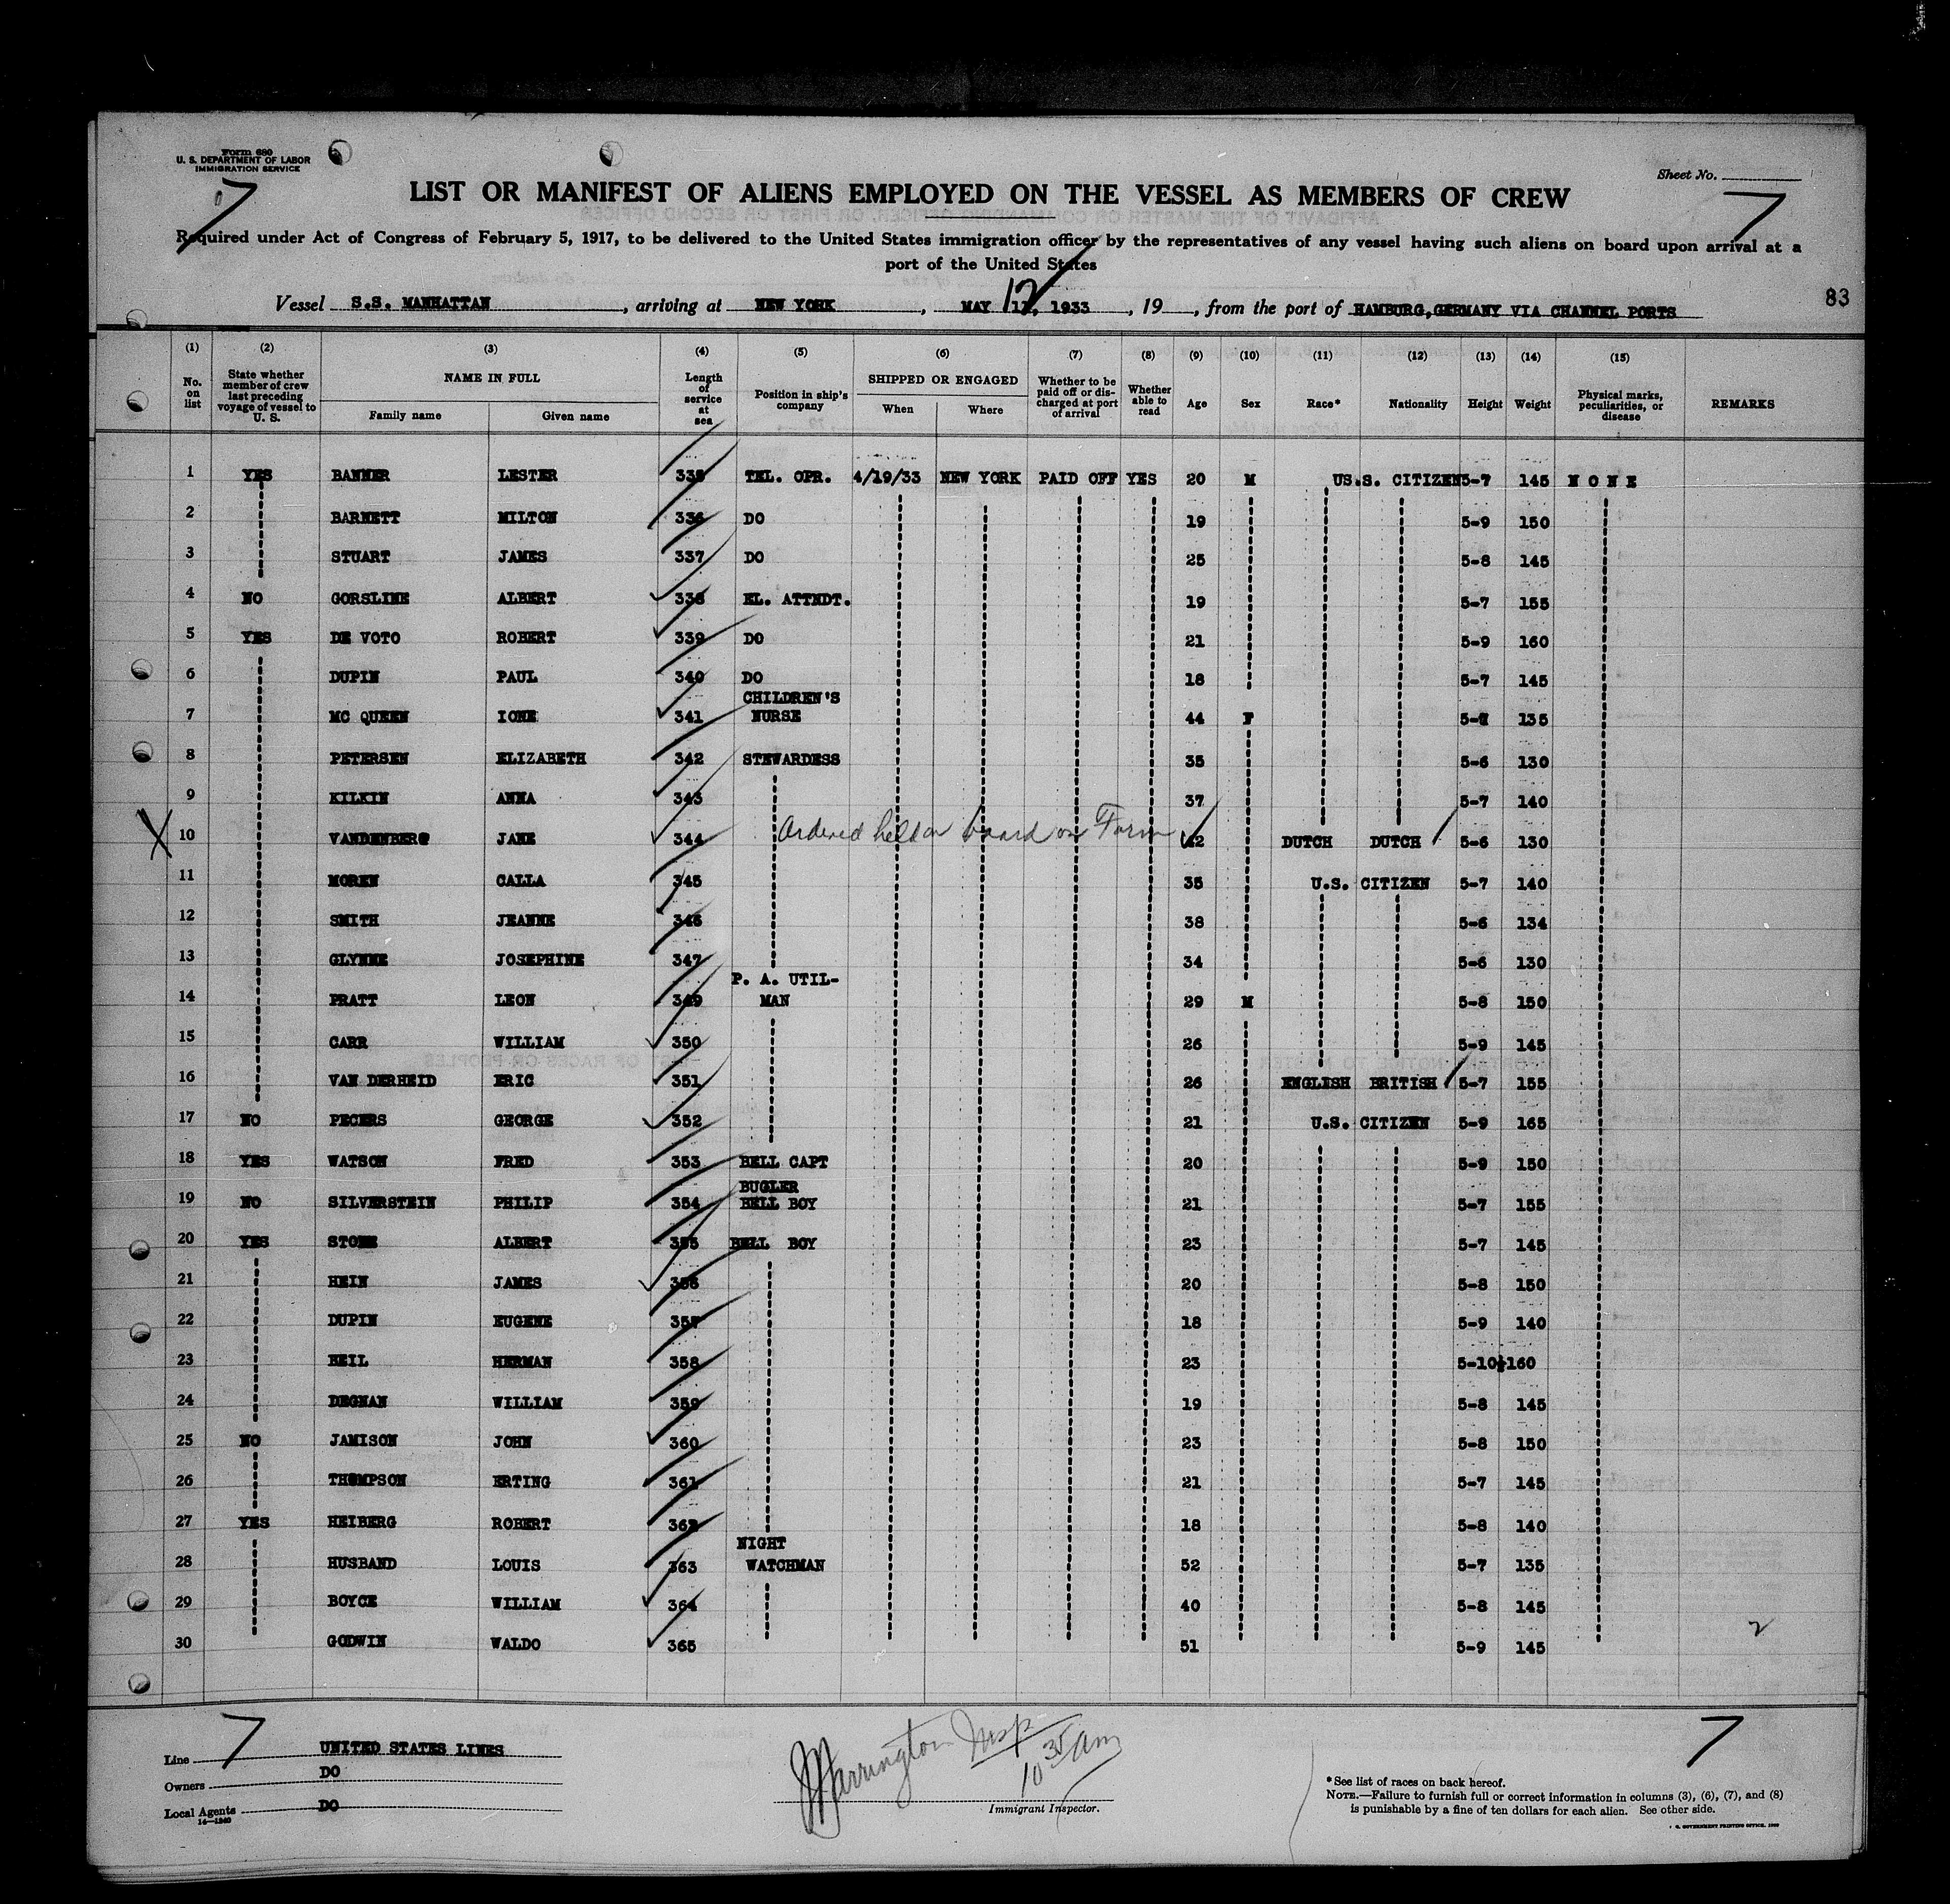 Form 680
U. S. DEPARTMENT OF LABOR
IMMIGRATION SERVICE
Sheet No.
7
7
LIST OR MANIFEST OF ALIENS EMPLOYED ON THE VESSEL AS MEMBERS OF CREW
Required under Act of Congress of February 5, 1917, to be delivered to the United States immigration officer by the representatives of any vessel having such aliens on board upon arrival at a
port of the United States
12
Vessel S.S. MANHATTAN, arriving at NEW YORK, MAY 11, 1933, 19, from the port of HAMBURG, GERMANY VIA CHANNEL PORTS
83
(1) (2) (3) (4) (5) (6) (7) (8) (9) (10) (11) (12) (13) (14) (15)
No. on list State whether member of crew last preceding voyage of vessel to U. S. NAME IN FULL Family name Given name Length of service at sea Position in ship's company SHIPPED OR ENGAGED When Where Whether to be paid off or discharged at port of arrival Whether able to read Age Sex Race* Nationality Height Weight Physical marks, peculiarities, or disease REMARKS
1 YES BANNER LESTER 335 TEL. OPR. 4/19/33 NEW YORK PAID OFF YES 20 M US.S. CITIZEN 5-7 145 NONE
2 BARNETT MILTON 336 DO 19 5-9 150
3 STUART JAMES 337 DO 25 5-8 145
4 NO GORSLINE ALBERT 338 EL. ATTNDT. 19 5-7 155
5 YES DE VOTO ROBERT 339 DO 21 5-9 160
6 DUPIN PAUL 340 DO 18 5-7 145
7 MC QUEEN IONE 341 CHILDREN'S NURSE 44 F 5-4 135
8 PETERSEN ELIZABETH 342 STEWARDESS 35 5-6 130
9 KILKIN ANNA 343 37 5-7 140
X 10 VANDENBERG JANE 344 Ordered held on board on Form 42 DUTCH DUTCH 5-6 130
11 MOREN CALLA 345 35 U.S. CITIZEN 5-7 140
12 SMITH JEANNE 346 38 5-6 134
13 GLYNNE JOSEPHINE 347 34 5-6 130
14 PRATT LEON 349 P. A. UTIL-MAN 29 M 5-8 150
15 CARR WILLIAM 350 26 5-9 145
16 VAN DERHEID ERIC 351 26 ENGLISH BRITISH 5-7 155
17 NO PECERS GEORGE 352 21 U.S. CITIZEN 5-9 165
18 YES WATSON FRED 353 BELL CAPT 20 5-9 150
19 NO SILVERSTEIN PHILIP 354 BUGLER BELL BOY 21 5-7 155
20 YES STONE ALBERT 355 BELL BOY 23 5-7 145
21 HEIN JAMES 356 20 5-8 150
22 DUPIN EUGENE 357 18 5-9 140
23 HEIL HERMAN 358 23 5-10½ 160
24 DEGNAN WILLIAM 359 19 5-8 145
25 NO JAMISON JOHN 360 23 5-8 150
26 THOMPSON ERTING 361 21 5-7 145
27 YES HEIBERG ROBERT 362 18 5-8 140
28 HUSBAND LOUIS 363 NIGHT WATCHMAN 52 5-7 135
29 BOYCE WILLIAM 364 40 5-8 145
2
30 GODWIN WALDO 365 51 5-9 145
7
7
Line UNITED STATES LINES
Owners DO
Local Agents DO
14—1240
Warrington Insp
10 35 am
Immigrant Inspector.
*See list of races on back hereof.
NOTE.—Failure to furnish full or correct information in columns (3), (6), (7), and (8)
is punishable by a fine of ten dollars for each alien. See other side.